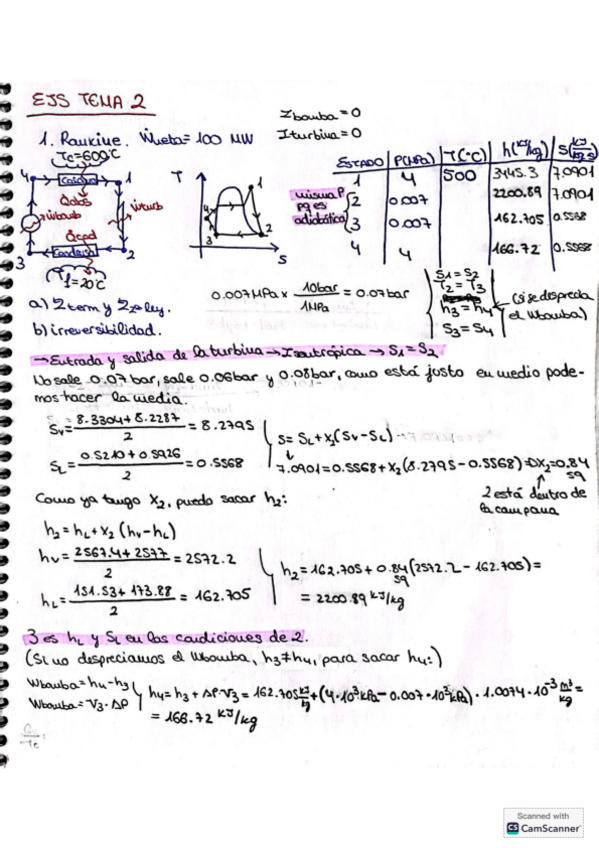 EJS TEMA 2
1. Rankine. Ẇneta= 100 MW
Ibomba=0
Iturbina=0
Tc=600°C
Caldera
Q̇abs
Ẇbomb
Ẇturb
Q̇ced
Condensa
Tf=20°C
4 1 3 2
T
S
1 2 3 4
ESTADO P(MPa) T(°C) h(kJ/kg) S(kJ/kg·K)
1 4 500 3445.3 7.0901
2 0.007 2200.89 7.0901
3 0.007 162.705 0.5568
4 4 166.72 0.5568
misma P
pq es
adiabática
0.007MPa x 10bar/1MPa = 0.07bar
S1=S2
T2=T3
h3=h4
S3=S4
(si se desprecia
el Wbomba)
a) ηterm y η2ª ley.
b) irreversibilidad.
→Entrada y salida de la turbina→Isentrópica → S1=S2
No sale 0.07 bar, sale 0.06bar y 0.08bar, como está justo en medio pode-
mos hacer la media.
Sv= 8.3304+8.2287/2 = 8.2795
SL= 0.5210+0.5926/2 = 0.5568
S= SL+x2(Sv-SL)
↓
7.0901=0.5568+x2(8.2795-0.5568)⇒x2=0.84
59
2 está dentro de
la campana
Como ya tengo x2, puedo sacar h2:
h2=hL+x2(hv-hL)
hv= 2567.4+2577/2 = 2572.2
hL= 151.53+173.88/2 = 162.705
h2=162.705+0.84(2572.2-162.705)=
59
= 2200.89 kJ/kg
3 es hL y SL en las condiciones de 2.
(Si no despreciamos el Wbomba, h3≠h4, para sacar h4:)
Wbomba=h4-h3
Wbomba=V3·ΔP
h4=h3+ΔP·V3=162.705kJ/kg+(4·10³kPa-0.007·10³kPa)·1.0074·10⁻³m³/kg=
= 166.72 kJ/kg
Scanned with
CS CamScanner